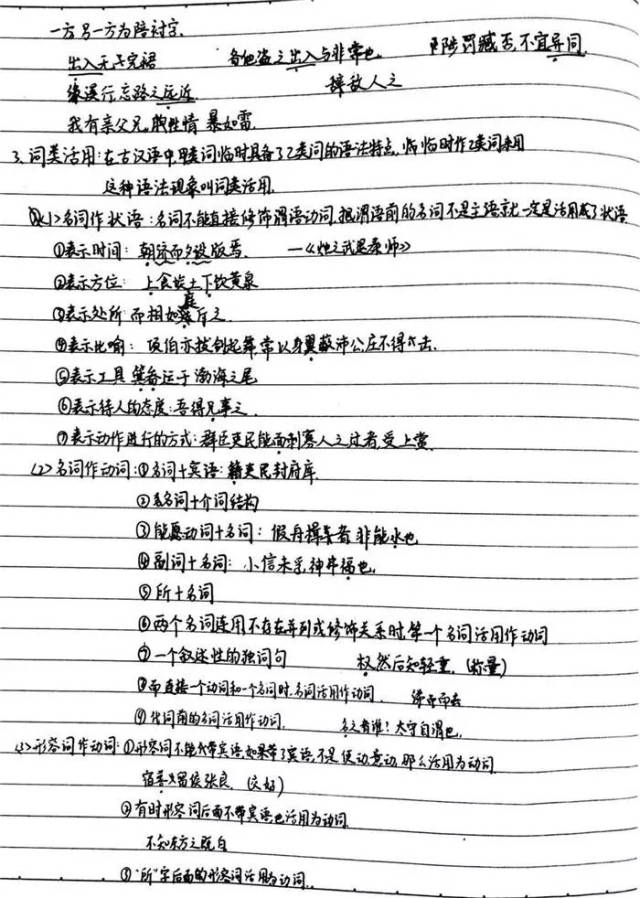 一方另一方为陪衬字.
出入无完裙 备他盗之出入与非常也 陟罚臧否,不宜异同.
缘溪行忘路之远近 辞敌人之
我有亲父兄,脾性情暴如雷.
3、词类活用:在古汉语中,甲类词临时具备了乙类词的语法特点,临时作乙类词来用
这种语法现象叫词类活用.
<1>名词作状语:名词不能直接修饰谓语动词,谓语前的名词不是主语,就一定是活用成了状语
①表示时间: 朝济而夕设版焉. —《烛之武退秦师》
②表示方位: 上食埃土下饮黄泉
③表示处所 而相如庭斥之
④表示比喻: 项伯亦拔剑起舞,常以身翼蔽沛公,庄不得击.
⑤表示工具 箕畚运于渤海之尾
⑥表示待人的态度:吾得兄事之.
⑦表示动作进行的方式:群臣吏民能面刺寡人之过者,受上赏
<2>名词作动词:①名词+宾语:籍吏民封府库.
②名词+介词结构
③能愿动词+名词: 假舟楫者,非能水也
④副词+名词: 小信未孚,神弗福也.
⑤所+名词
⑥两个名词连用不存在并列或修饰关系时,第一个名词活用作动词
⑦一个叙述性的独词句 权,然后知轻重. (称量)
⑧而连接一个动词和一个名词时,名词活用作动词.
⑨代词前的名词活用作动词. 名之者谁?太守自谓也.
<3>形容词作动词:①形容词不能带宾语,如果带了宾语,不是使动,意动,那么活用为动词
留侯张良. (交好)
②有时形容词后面不带宾语也活用为动词
不知东方之既白
③"所"字后面的形容词活用为动词.